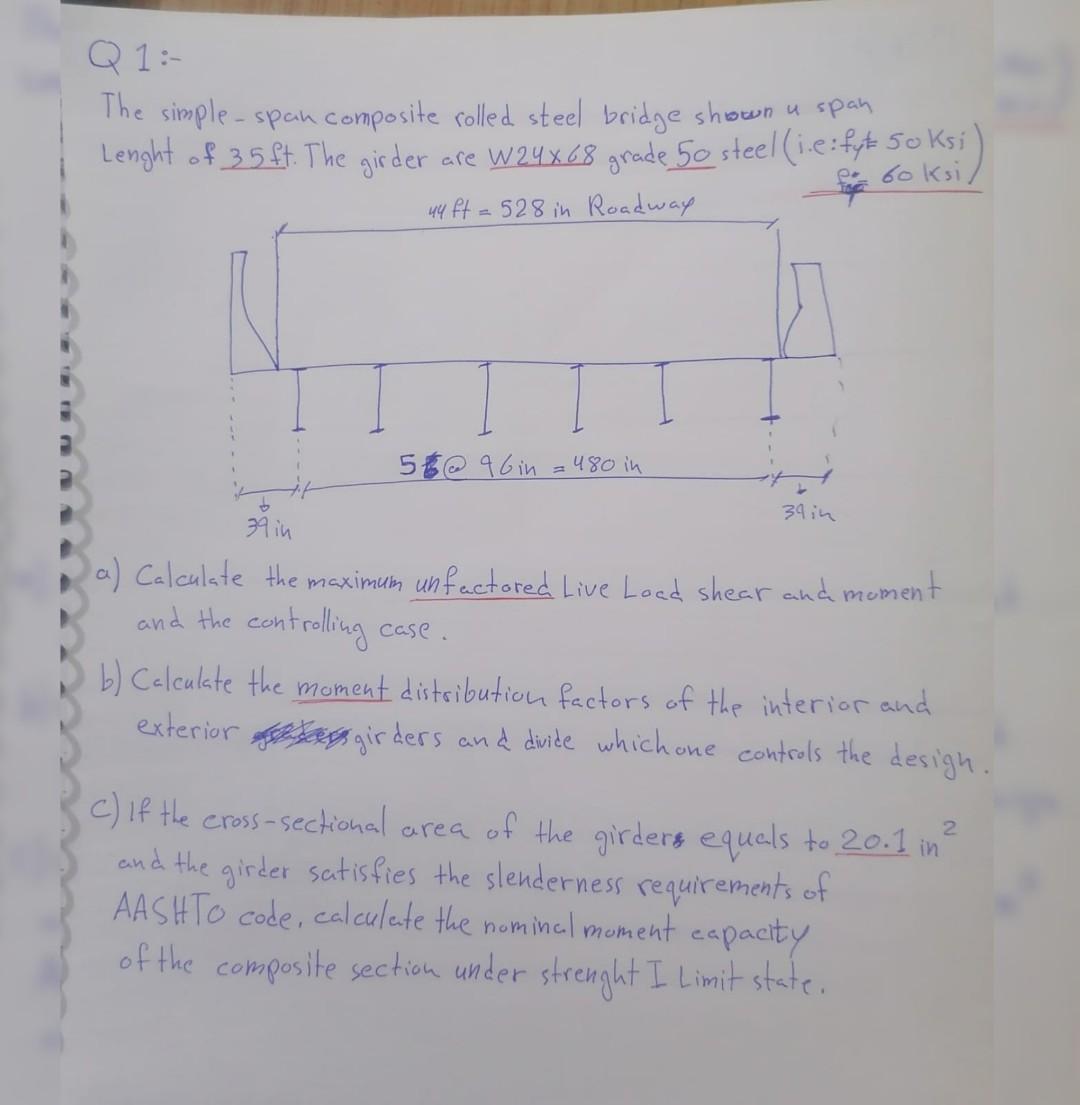 Q1:-
The simple-span composite rolled steel bridge shown u span
Lenght of 35ft. The girder are W24x68 grade 50 steel (i.e: fyt= 50 Ksi)
60 Ksi
44 ft = 528 in Roadway
5 @ 96in = 480 in
39 in
39 in
a) Calculate the maximum unfactored Live Load shear and moment
and the controlling case.
b) Calculate the moment distribution factors of the interior and
exterior girders and divide which one controls the design.
c) If the cross-sectional area of the girders equals to 20.1 in²
and the girder satisfies the slenderness requirements of
AASHTO code, calculate the nominal moment capacity
of the composite section under strenght I Limit state.